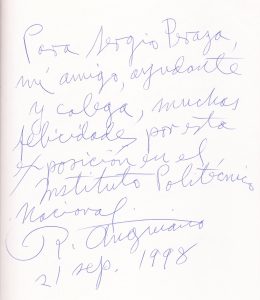 Para Sergio Peraza,
mi amigo, ayudante
y colega, muchas
felicidades por esta
exposición en el
Instituto Politécnico
Nacional.
R. Anguiano
21 sep. 1998